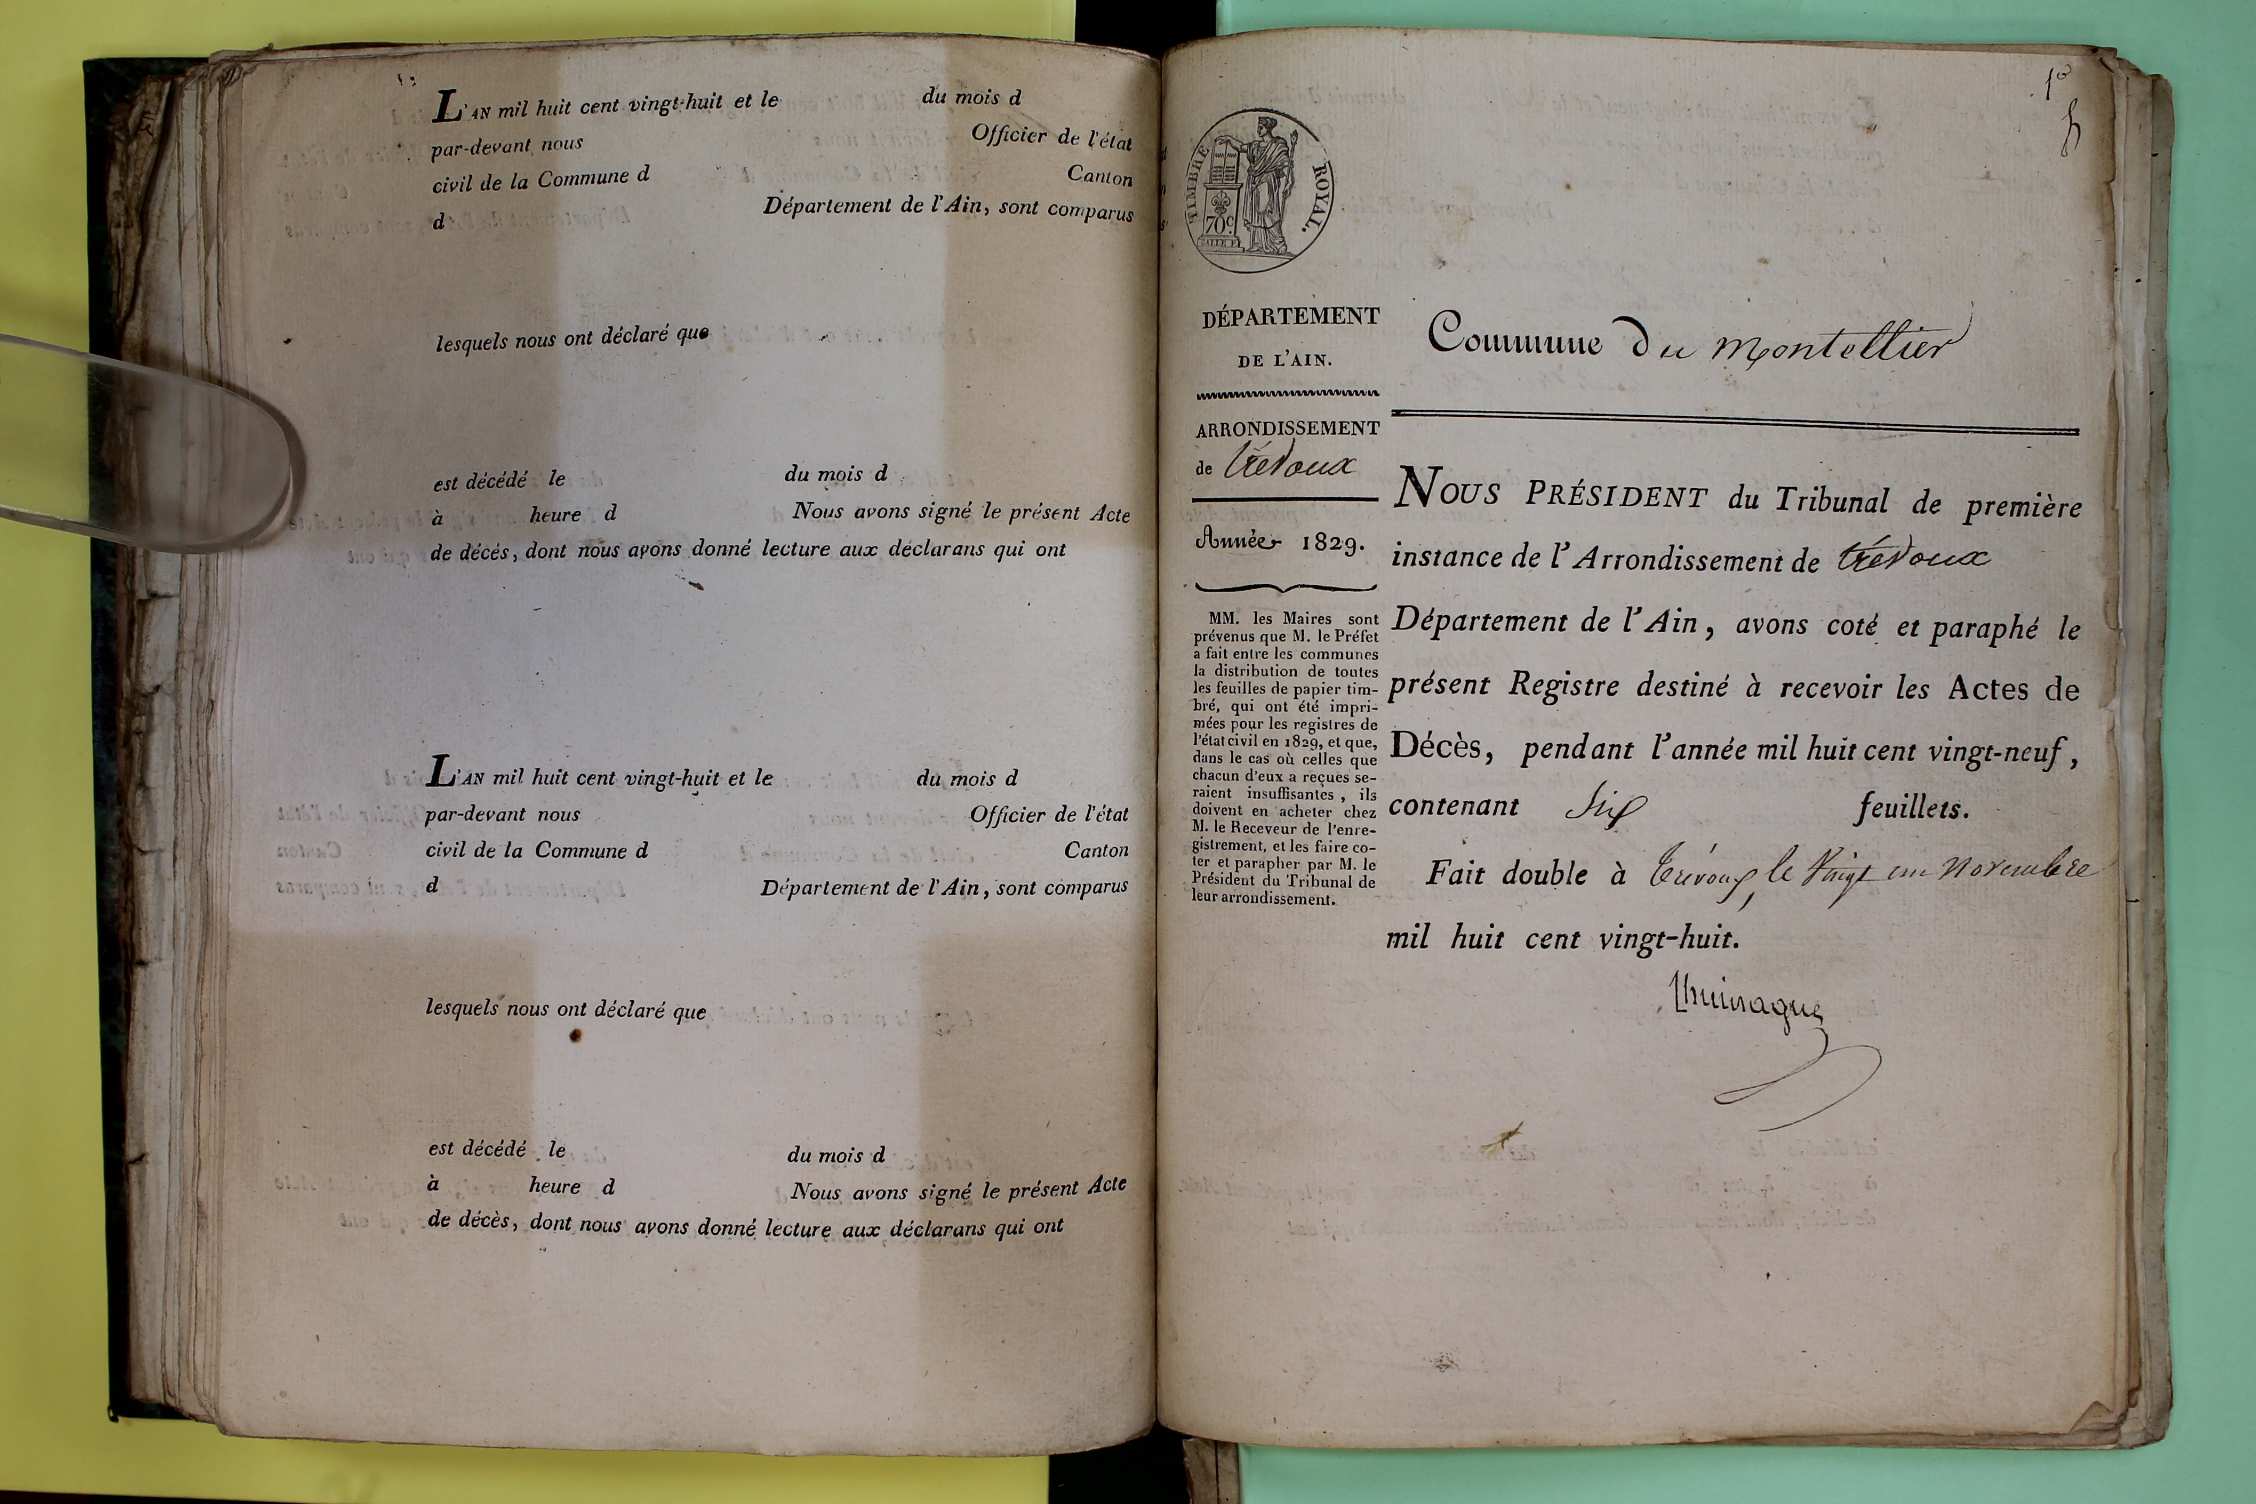 L'AN mil huit cent vingt-huit et le du mois d
par-devant nous Officier de l'état
civil de la Commune d Canton
d Département de l'Ain, sont comparus
lesquels nous ont déclaré que
est décédé le du mois d
à heure d Nous avons signé le présent Acte
de décés, dont nous avons donné lecture aux déclarans qui ont
L'AN mil huit cent vingt-huit et le du mois d
par-devant nous Officier de l'état
civil de la Commune d Canton
d Département de l'Ain, sont comparus
lesquels nous ont déclaré que
est décédé le du mois d
à heure d Nous avons signé le présent Acte
de décès, dont nous avons donné lecture aux déclarans qui ont
1º
TIMBRE ROYAL.
70 c
DÉPARTEMENT
DE L'AIN.
ARRONDISSEMENT
de Trévoux
Année 1829.
MM. les Maires sont
prévenus que M. le Préfet
a fait entre les communes
la distribution de toutes
les feuilles de papier tim-
bré, qui ont été impri-
mées pour les registres de
l'état civil en 1829, et que,
dans le cas où celles que
chacun d'eux a reçues se-
raient insuffisantes, ils
doivent en acheter chez
M. le Receveur de l'enre-
gistrement, et les faire co-
ter et parapher par M. le
Président du Tribunal de
leur arrondissement.
Commune Du Montellier
NOUS PRÉSIDENT du Tribunal de première
instance de l'Arrondissement de Trévoux
Département de l'Ain, avons coté et paraphé le
présent Registre destiné à recevoir les Actes de
Décès, pendant l'année mil huit cent vingt-neuf,
contenant Six feuillets.
Fait double à Trévoux, le Vingt un Novembre
mil huit cent vingt-huit.